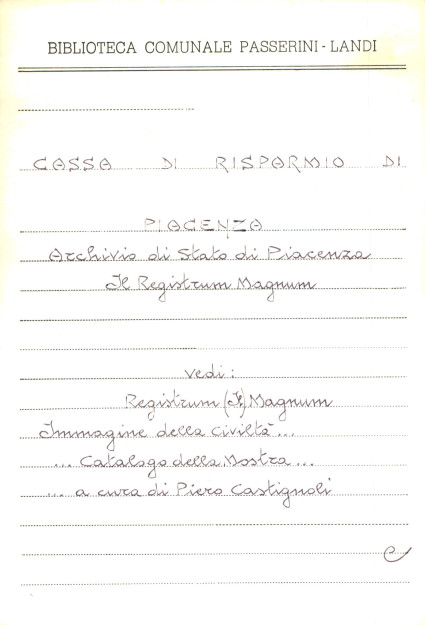 BIBLIOTECA COMUNALE PASSERINI-LANDI
CASSA DI RISPARMIO DI
PIACENZA
Archivio di Stato di Piacenza
Il Registrum Magnum
vedi:
Registrum (Il) Magnum
Immagine della civiltà...
... Catalogo della Mostra ...
... a cura di Piero Castignoli
C